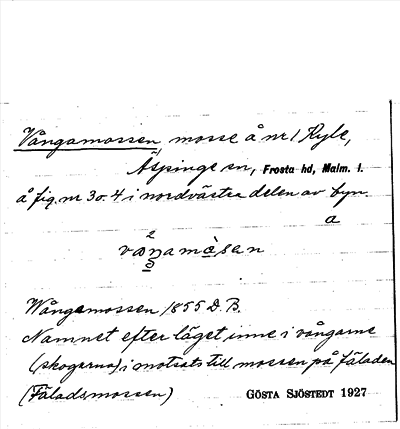 Vångamossen, mosse å nr 1 Ryle,
Äspinge sn, Frosta hd, Malm. l.
å fig. nr 3 o. 4 i nordvästra delen av byn.
a
Wångamossen 1855 D.B.
Namnet efter läget inne i vångarne
(skogarna) i motsats till mossen på fäladen
(Fäladsmossen) GÖSTA SJÖSTEDT 1927